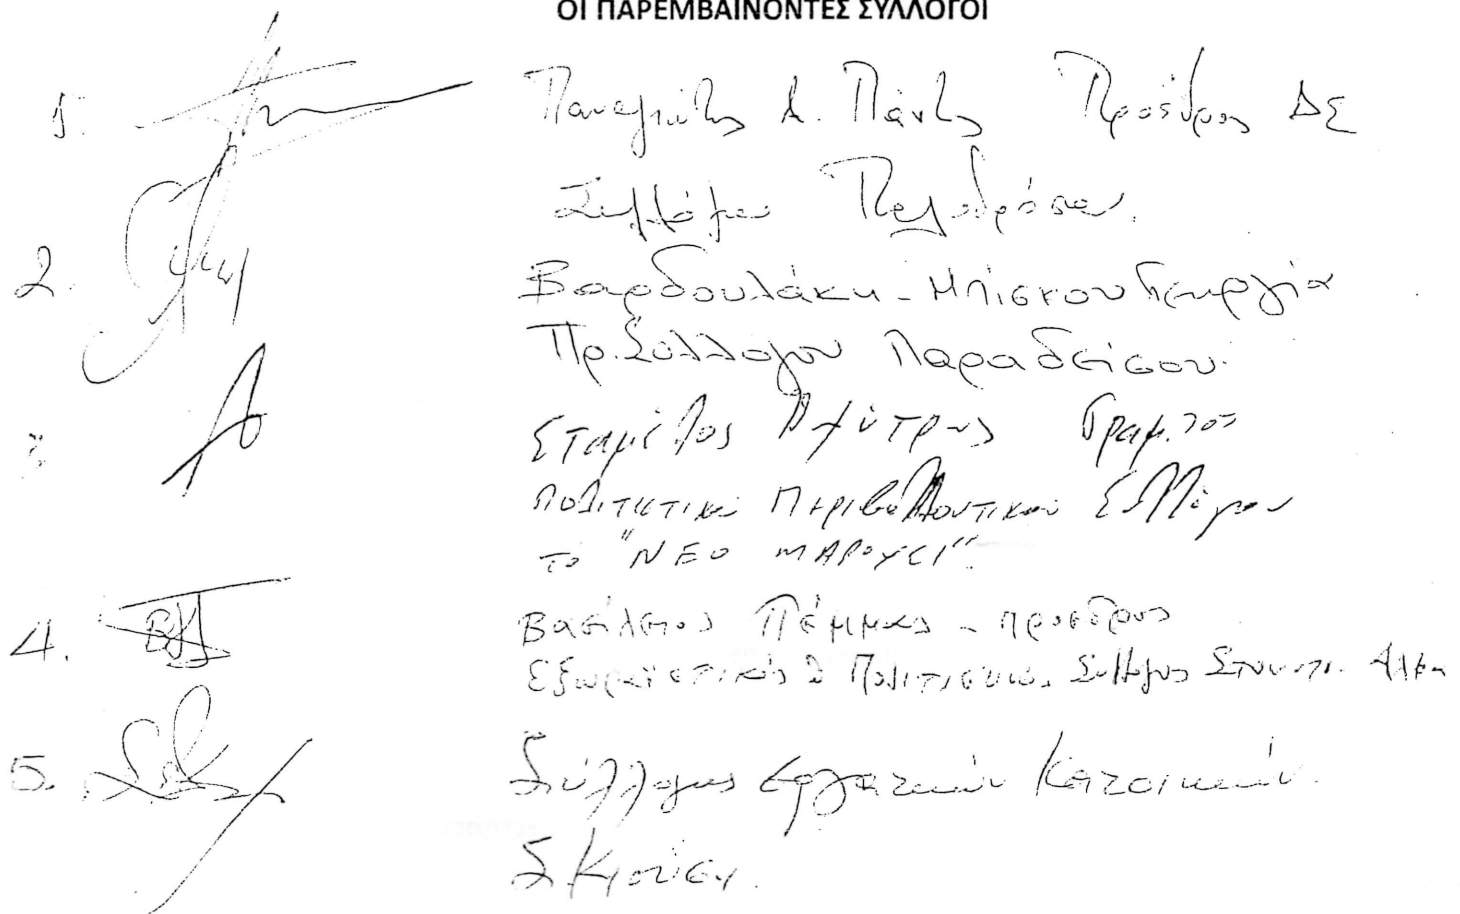 ΟΙ ΠΑΡΕΜΒΑΙΝΟΝΤΕΣ ΣΥΛΛΟΓΟΙ
1. Παναγιώτης Α. Πάντζης Πρόεδρος ΔΣ
Συλλόγου Πολυδρόσου.
2. Βαρδουλάκη - Μπίσκου Γεωργία
Πρ. Συλλόγου Παραδείσου.
3. Δημήτρης Γραμ. του
Πολιτιστικού Περιβαλλοντικού Συλλόγου
το "ΝΕΟ ΜΑΡΟΥΣΙ"
4. Βασίλειος Πέμμας - πρόεδρος
Εξωραϊστικός & Πολιτιστικός Σύλλογος
5. Σύλλογος Εργατικών Κατοικιών.